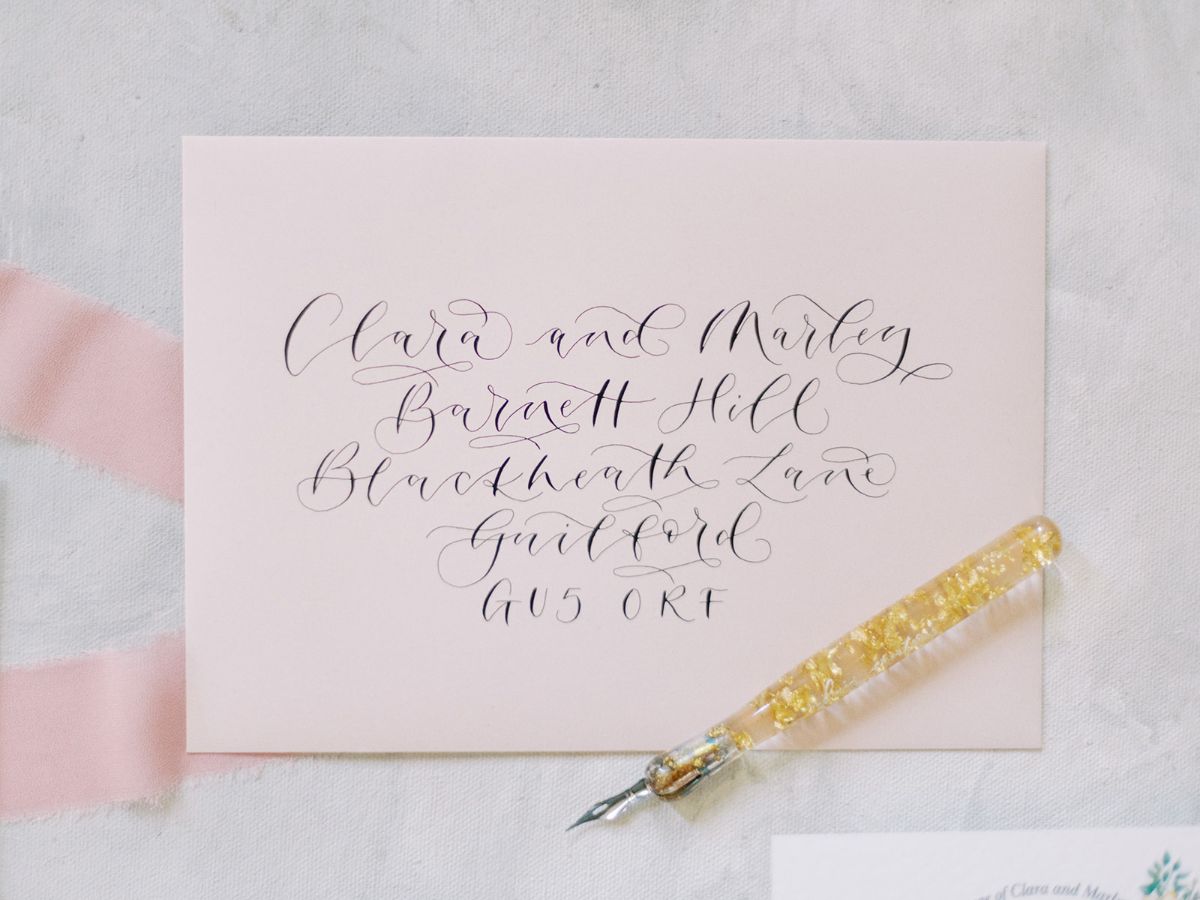 Clara and Marley
Barnett Hill
Blackheath Lane
Guilford
GU5 0RF
of Clara and Marley